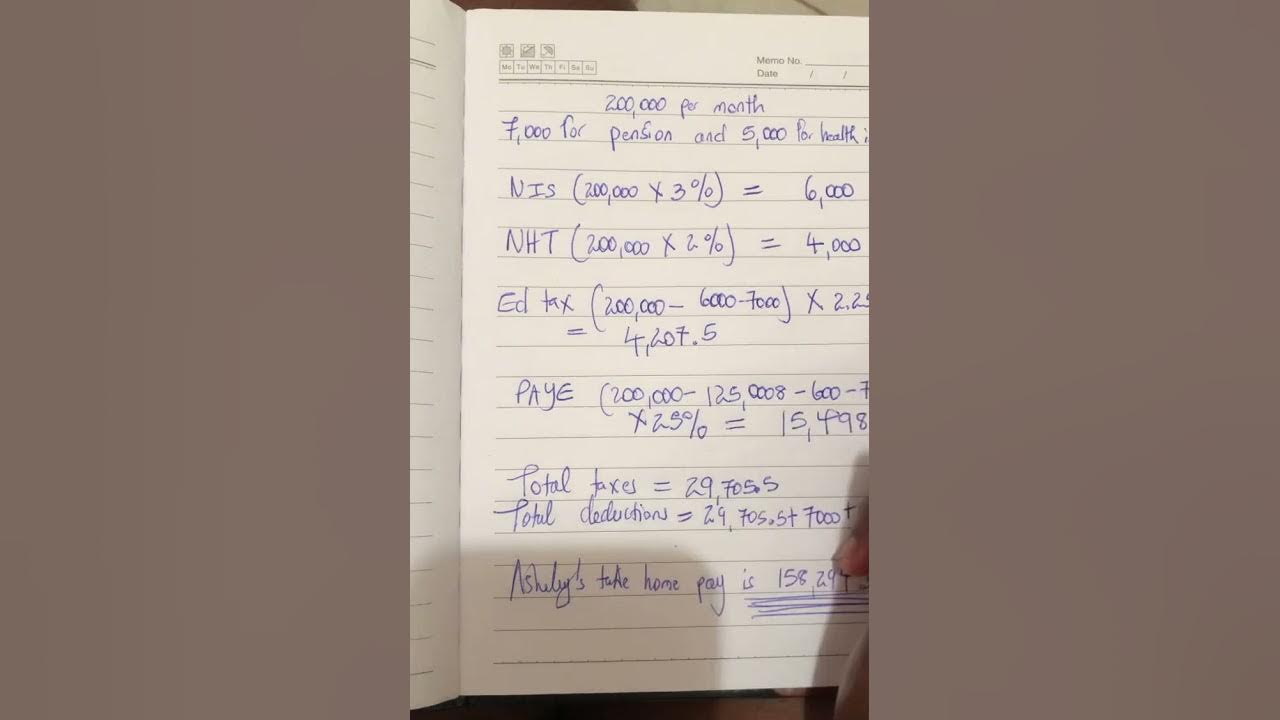 Mo Tu We Th Fr Sa Su
Memo No.
Date / /
200,000 per month
7,000 for pension and 5,000 for health i
NIS (200,000 X 3%) = 6,000
NHT (200,000 X 2%) = 4,000
Ed tax (200,000 - 6000-7000) X 2.25
= 4,207.5
PAYE (200,000 - 125,0008 - 600 - 7
X25% = 15,498
Total taxes = 29,705.5
Total deductions = 29,705.5+ 7000+
take home pay is 158,294